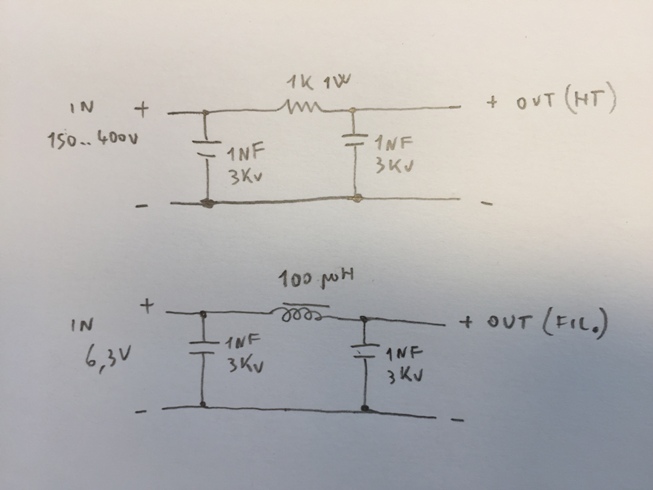 1K 1W
IN + + OUT (HT)
150.. 400V
1NF 1NF
3KV 3KV
- -
100 µH
+
IN + OUT (FIL.)
6,3V
1NF 1NF
3KV 3KV
- -